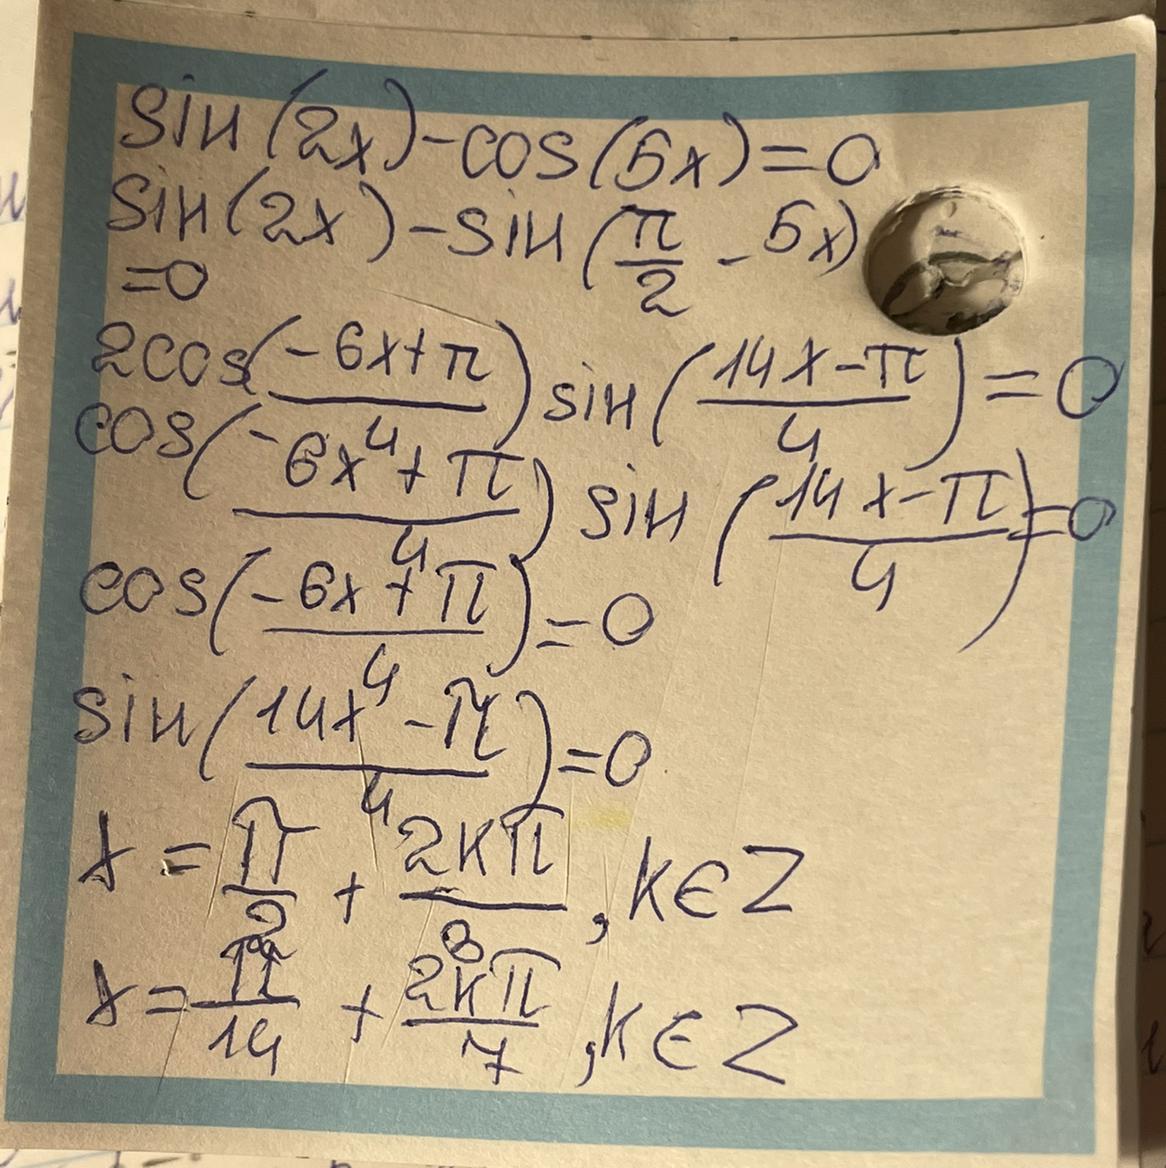 sin(2x)-cos(5x)=0
sin(2x)-sin(π/2 - 5x)
=0
2cos(-6x+π/4)sin(14x-π/4)=0
cos(-6x+π/4)sin(14x-π/4)=0
cos(-6x+π/4)=0
sin(14x-π/4)=0
x=π/2 + 2kπ/3, k∈Z
x=π/14 + 2kπ/7, k∈Z